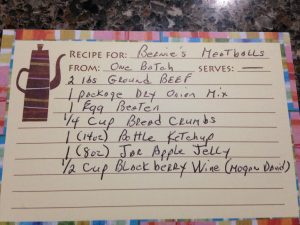 RECIPE FOR: Bernie's Meatballs
FROM: One Batch SERVES:
2 lbs Ground BEEF
1 package Dry Onion Mix
1 Egg Beaten
1/4 Cup Bread Crumbs
1 (14oz) Bottle Ketchup
1 (8oz) Jar Apple Jelly
1/2 Cup Blackberry Wine (Mogan David)